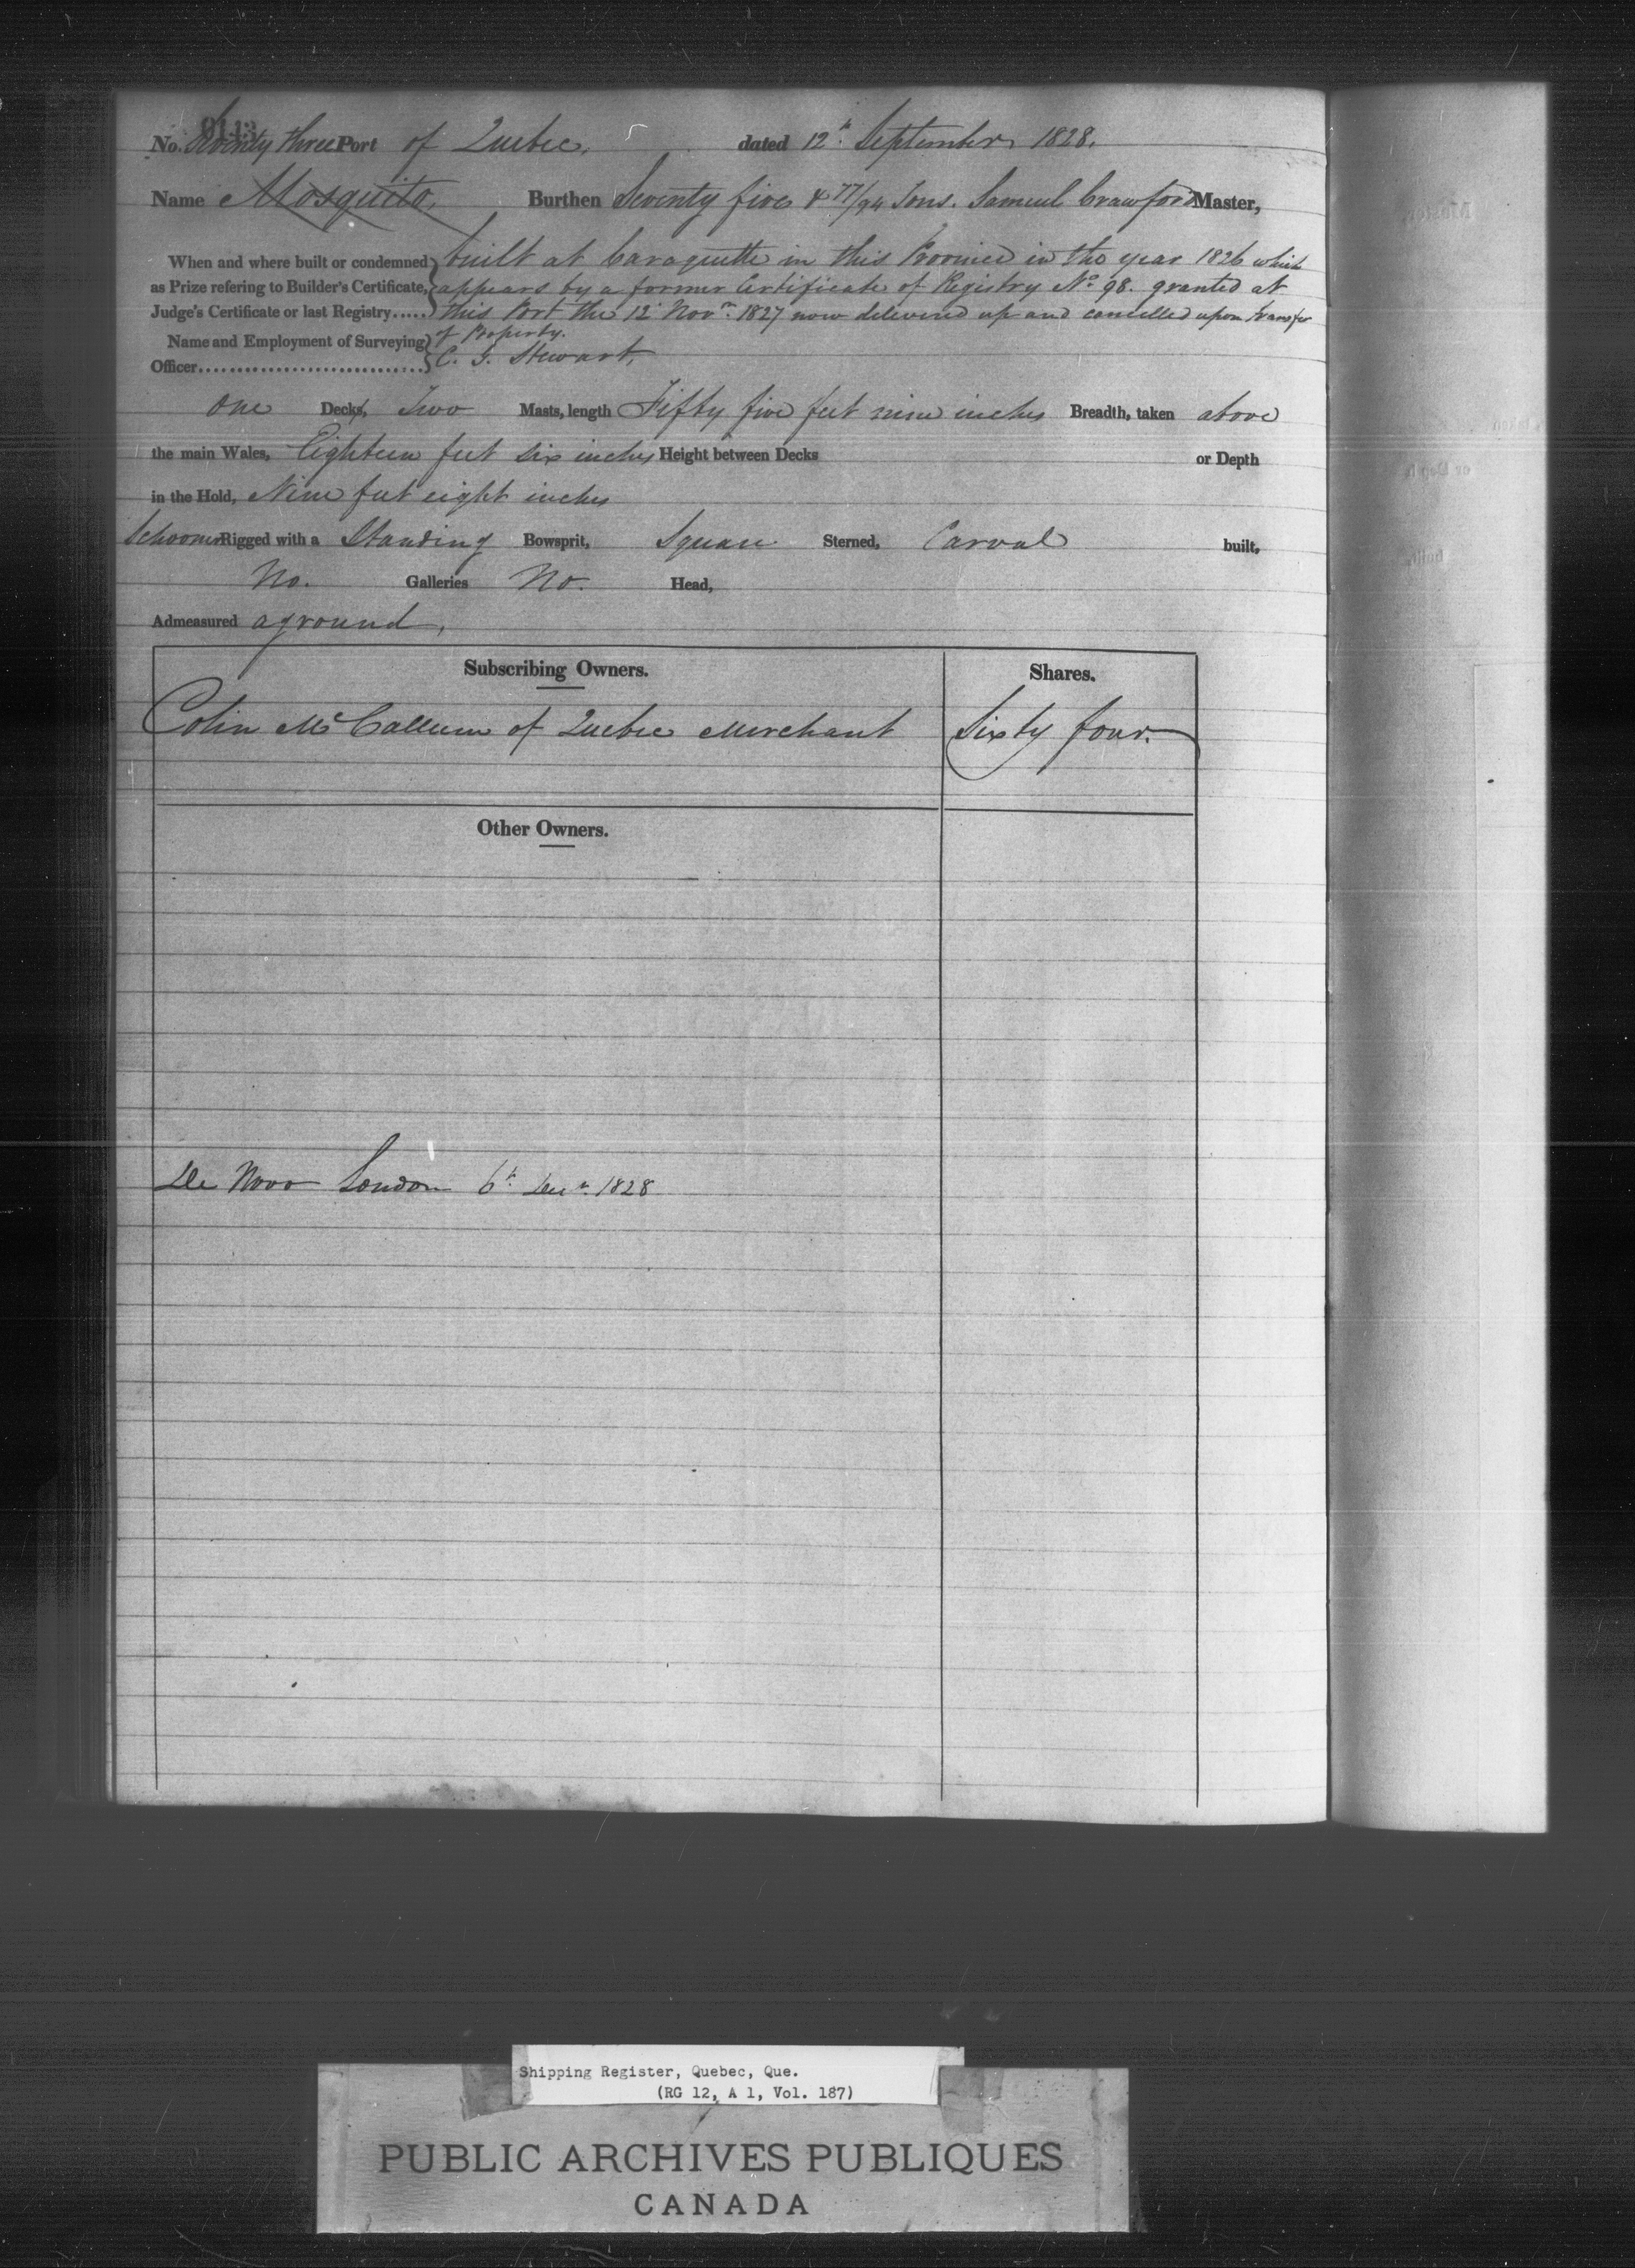 9113
No. Seventy three Port of Quebec, dated 12th September 1828.
Name Mosquito, Burthen Seventy five & 77/94 Tons. Samuel Crawford Master,
When and where built or condemned as Prize refering to Builder's Certificate, Judge's Certificate or last Registry.....
built at Caraquette in this Province in the year 1826 which
appears by a former Certificate of Registry No. 98. granted at
this Port the 12 Novr. 1827 now delivered up and cancelled upon transfer
of Property.
Name and Employment of Surveying Officer..............................
C. G. Stewart,
One Decks, Two Masts, length Fifty five feet nine inches Breadth, taken above
the main Wales, Eighteen feet six inches Height between Decks or Depth
in the Hold, Nine feet eight inches
Schooner Rigged with a Standing Bowsprit, Square Sterned, Carvel built,
No. Galleries No. Head,
Admeasured aground,
Subscribing Owners. Shares.
Colin McCallum of Quebec Merchant Sixty four.
Other Owners.
De Novo London 6th Decr. 1828
Shipping Register, Quebec, Que.
(RG 12, A 1, Vol. 187)
PUBLIC ARCHIVES PUBLIQUES
CANADA